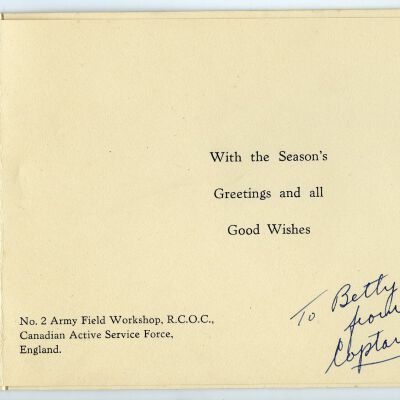 With the Season's
Greetings and all
Good Wishes
No. 2 Army Field Workshop, R.C.O.C.,
Canadian Active Service Force,
England.
To Betty
from